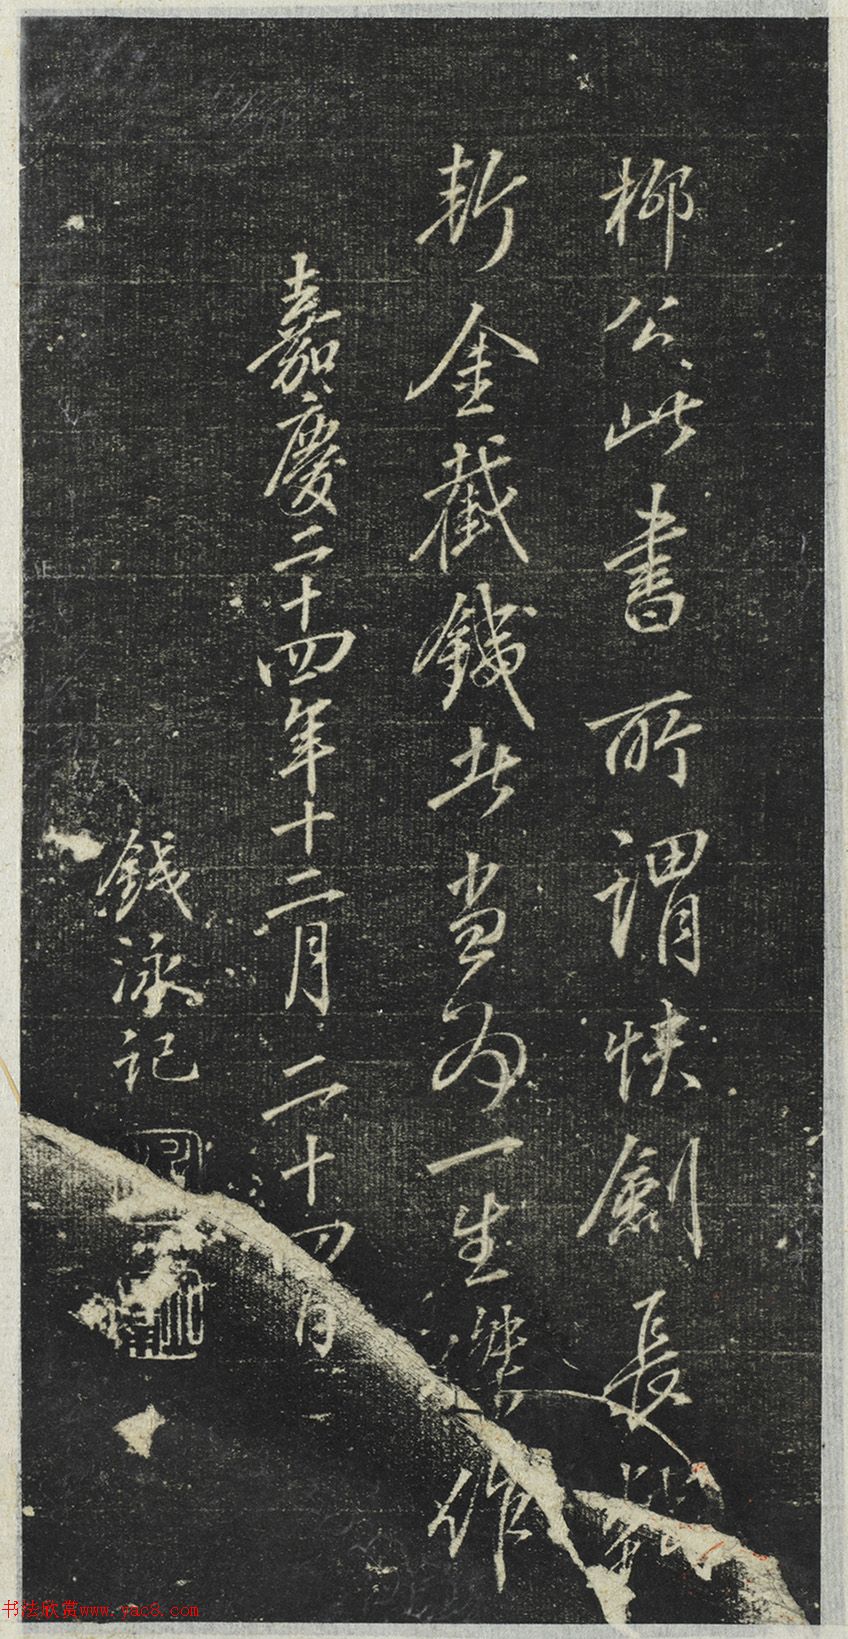 柳公此書所謂快劍長戟
斬金截鐵者當為一生傑作
嘉慶二十四年十二月二十四日
錢泳記
书法欣赏www.yac8.com